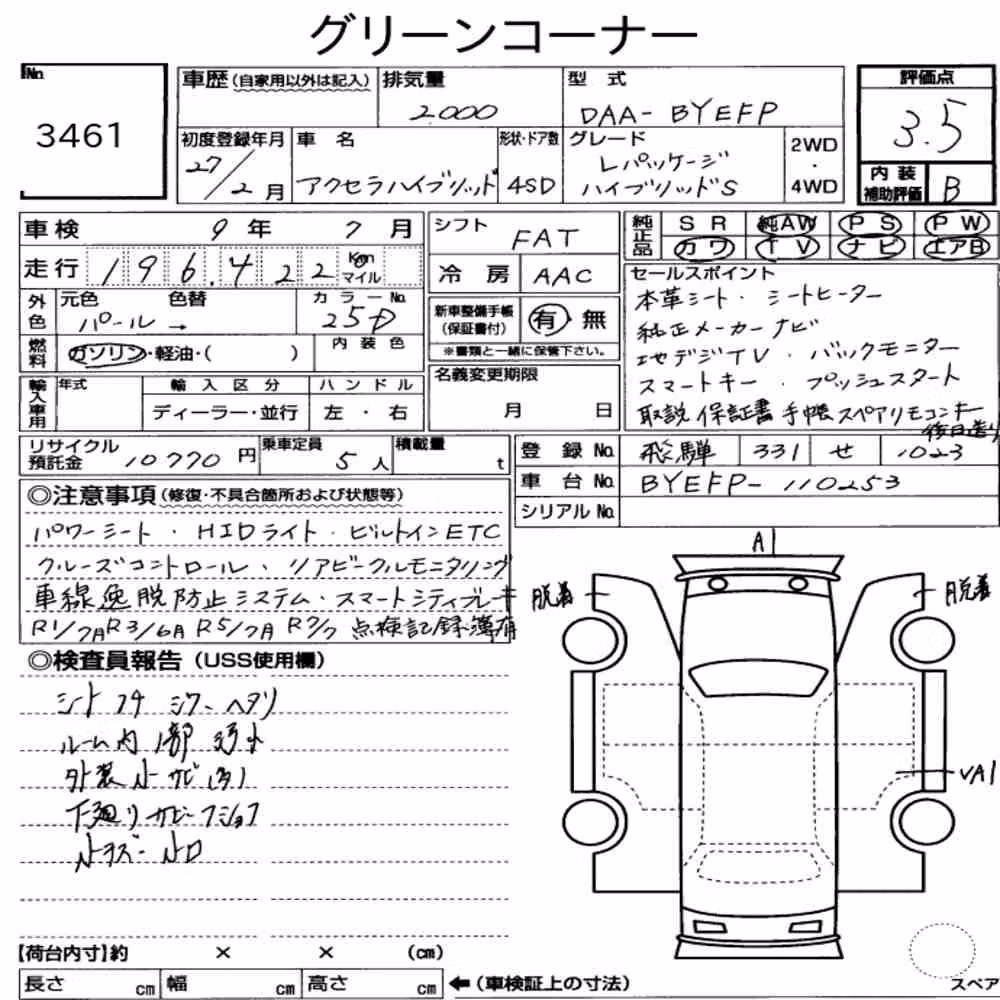 グリーンコーナー
No. 3461
車歴(自家用以外は記入) 排気量 2000 型式 DAA-BYEFP 評価点 3.5
初度登録年月 27/2月 車名 アクセラハイブリッド 形状・ドア数 4SD グレード Lパッケージ ハイブリッドS 2WD・4WD
内装補助評価 B
車検 9年 7月 シフト FAT 純正品 SR 純AW PS PW
走行 196,422 Km マイル 冷房 AAC カワ TV ナビ エアB
外色 元色 パール→ 色替 カラーNo. 25D 新車整備手帳(保証書付) 有 無
※書類と一緒に保管下さい。
燃料 ガソリン・軽油・( ) 内装色
セールスポイント
本革シート・シートヒーター
純正メーカーナビ
地デジTV・バックモニター
スマートキー・プッシュスタート
取説 保証書 手帳 スペアリモコンキー
後日送り
輸入車用 年式 輸入区分 ディーラー・並行 ハンドル 左・右 名義変更期限 月 日
リサイクル預託金 10770円 乗車定員 5人 積載量 t
登録No. 飛騨 331 せ 1023
車台No. BYEFP-110253
シリアルNo.
◎注意事項(修復・不具合箇所および状態等)
パワーシート・HIDライト・ビルトインETC
クルーズコントロール・リアビークルモニタリング
車線逸脱防止システム・スマートシティブレーキ
R1/7月 R3/6月 R5/7月 R7/7 点検記録簿有
◎検査員報告(USS使用欄)
シート スレ シワ ヘタリ
ルーム内 1部 汚小
外装小
下廻り サビ
小キズ 小
A1
脱着
脱着
VA1
【荷台内寸】約 × × (cm)
長さ cm 幅 cm 高さ cm ←(車検証上の寸法)
スペア